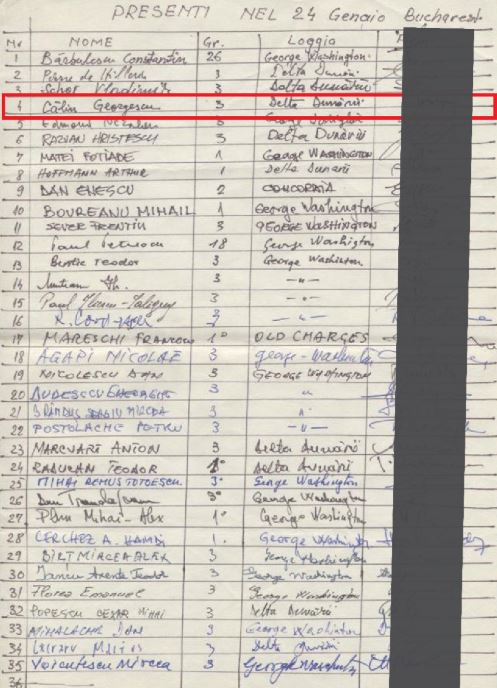 PRESENTI NEL 24 Gennaio Bucharest
Nr NOME Gr. Loggia
1 Bărbulescu Constantin 26 George Washington
2 3 Delta Dunării
3 Schor Vladimir 3 Delta Dunării
4 Călin Georgescu 3 Delta Dunării
5 Edmond 3 George Washington
6 RAZVAN HRISTESCU 3 Delta Dunării
7 MATEI FOTIADE 1 GEORGE WASHINGTON
8 HOFFMANN ARTHUR 1 Delta Dunării
9 DAN ENESCU 2 CONCORDIA
10 BOUREANU MIHAIL 1 George Washington
11 SEVER FRENTIU 3 GEORGE WASHINGTON
12 Paul 18 George Washington
13 Teodor 3 George Washington
14 3 -"-
15 Paul 3 -"-
16 -"-
17 MARESCHI FRANCESCO 1° OLD CHARGES
18 AGAPI NICOLAE 3 George-Washington
19 NICOLESCU DAN 3 GEORGE WASHINGTON
20 DUDESCU GHEORGHE 3 "
21 MIRCEA 3 "
22 POSTOLACHE PETRU 3 -"-
23 MARCVART ANTON 3 Delta Dunării
24 RADUCAN TEODOR 1° Delta Dunării
25 MIHAI REMUS TOTOESCU 3° George Washington
26 Dan 3° George Washington
27 Mihai-Alex 1° George Washington
28 CERCHEZ A. HAMDI 1. George Washington
29 BIRT MIRCEA ALEX 3 George Washington
30 3 George Washington
31 Florea Emanuel 3 George Washington
32 POPESCU CEZAR MIHAI 3 Delta Dunării
33 MIHALACHE DAN 3 George Washington
34 3 Delta Dunării
35 Voiculescu Mircea 3 George Washington
36